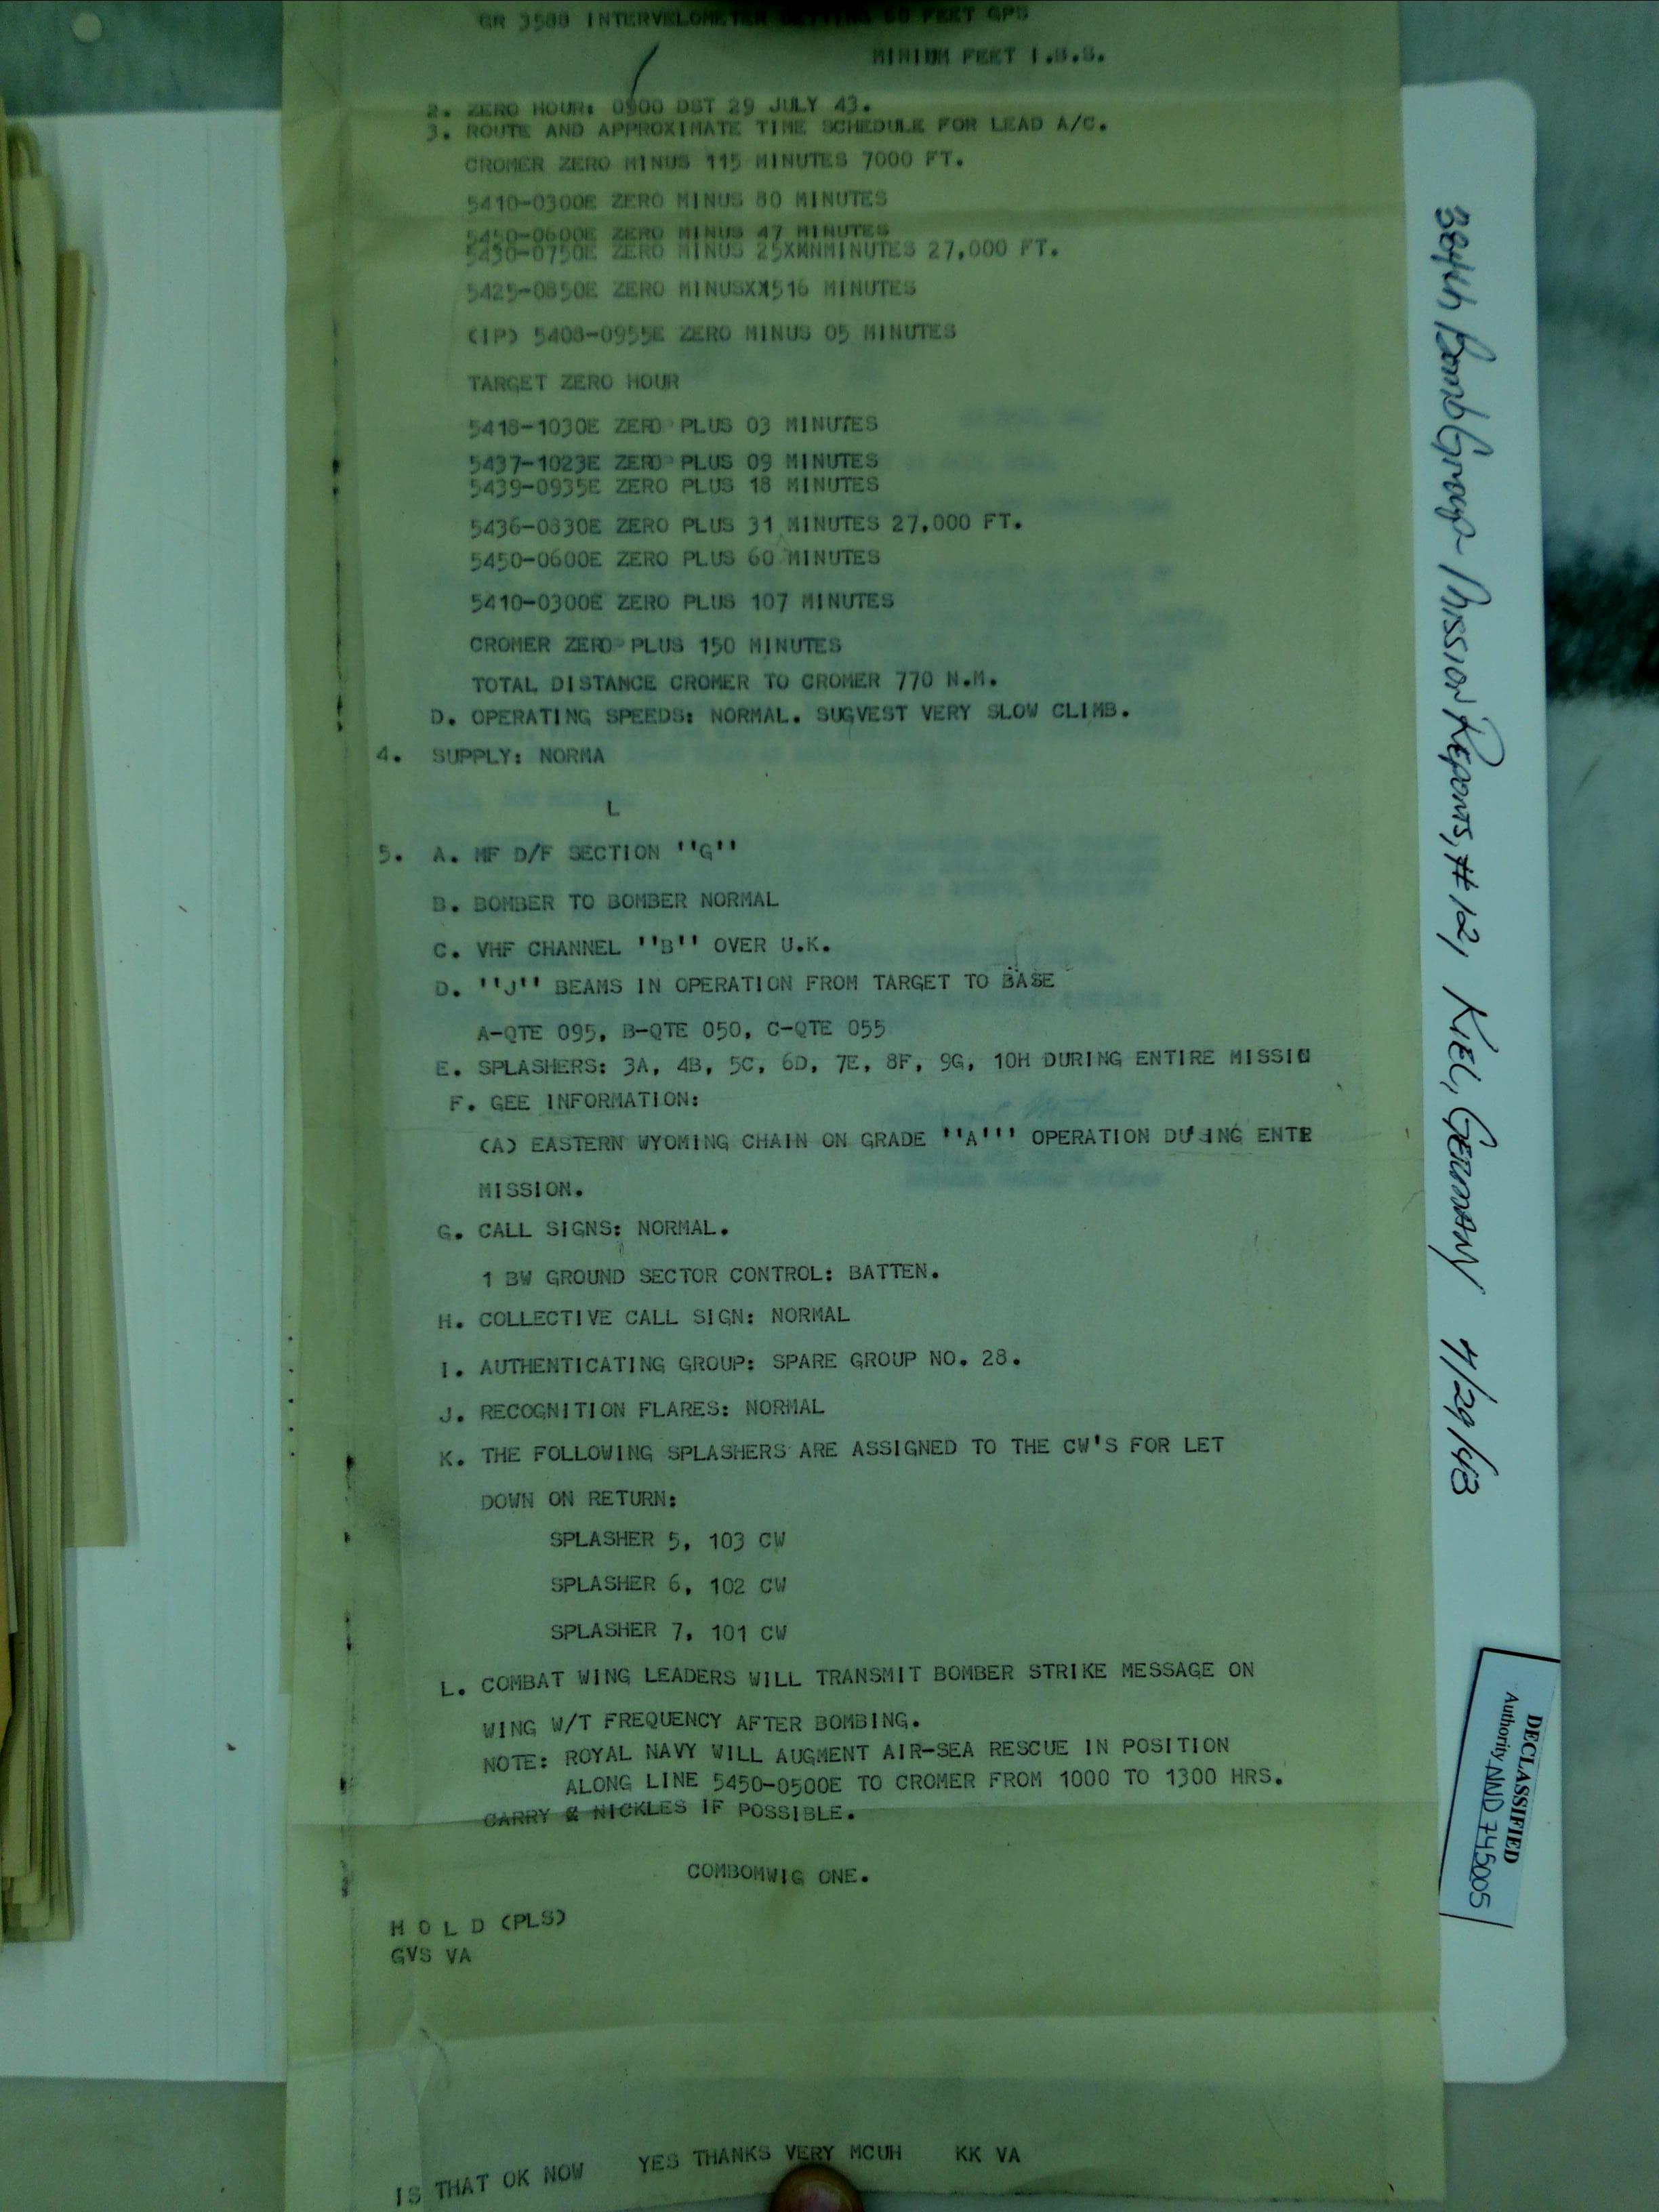 GR 3500 INTERVELOMETER SETTING 60 FEET GPS
MINIUM FEET I.B.S.
2. ZERO HOUR: 0900 DST 29 JULY 43.
3. ROUTE AND APPROXIMATE TIME SCHEDULE FOR LEAD A/C.
CROMER ZERO MINUS 115 MINUTES 7000 FT.
5410-0300E ZERO MINUS 80 MINUTES
5450-0600E ZERO MINUS 47 MINUTES
5430-0750E ZERO MINUS 25XMNMINUTES 27,000 FT.
5425-0850E ZERO MINUSXX516 MINUTES
(IP) 5408-0955E ZERO MINUS 05 MINUTES
TARGET ZERO HOUR
5418-1030E ZERO PLUS 03 MINUTES
5437-1023E ZERO PLUS 09 MINUTES
5439-0935E ZERO PLUS 18 MINUTES
5436-0830E ZERO PLUS 31 MINUTES 27,000 FT.
5450-0600E ZERO PLUS 60 MINUTES
5410-0300E ZERO PLUS 107 MINUTES
CROMER ZERO PLUS 150 MINUTES
TOTAL DISTANCE CROMER TO CROMER 770 N.M.
D. OPERATING SPEEDS: NORMAL. SUGVEST VERY SLOW CLIMB.
4. SUPPLY: NORMA
L
5. A. MF D/F SECTION ''G''
B. BOMBER TO BOMBER NORMAL
C. VHF CHANNEL ''B'' OVER U.K.
D. ''J'' BEAMS IN OPERATION FROM TARGET TO BASE
A-QTE 095, B-QTE 050, C-QTE 055
E. SPLASHERS: 3A, 4B, 5C, 6D, 7E, 8F, 9G, 10H DURING ENTIRE MISSIO
F. GEE INFORMATION:
(A) EASTERN WYOMING CHAIN ON GRADE ''A''' OPERATION DURING ENTR
MISSION.
G. CALL SIGNS: NORMAL.
1 BW GROUND SECTOR CONTROL: BATTEN.
H. COLLECTIVE CALL SIGN: NORMAL
I. AUTHENTICATING GROUP: SPARE GROUP NO. 28.
J. RECOGNITION FLARES: NORMAL
K. THE FOLLOWING SPLASHERS ARE ASSIGNED TO THE CW'S FOR LET
DOWN ON RETURN:
SPLASHER 5, 103 CW
SPLASHER 6, 102 CW
SPLASHER 7, 101 CW
L. COMBAT WING LEADERS WILL TRANSMIT BOMBER STRIKE MESSAGE ON
WING W/T FREQUENCY AFTER BOMBING.
NOTE: ROYAL NAVY WILL AUGMENT AIR-SEA RESCUE IN POSITION
ALONG LINE 5450-0500E TO CROMER FROM 1000 TO 1300 HRS.
CARRY & NICKLES IF POSSIBLE.
COMBOMWIG ONE.
H O L D (PLS)
GVS VA
IS THAT OK NOW YES THANKS VERY MCUH KK VA
384th Bomb Group - Mission Reports, #12, KIEL, GERMANY 7/29/43
DECLASSIFIED
Authority NND 745005